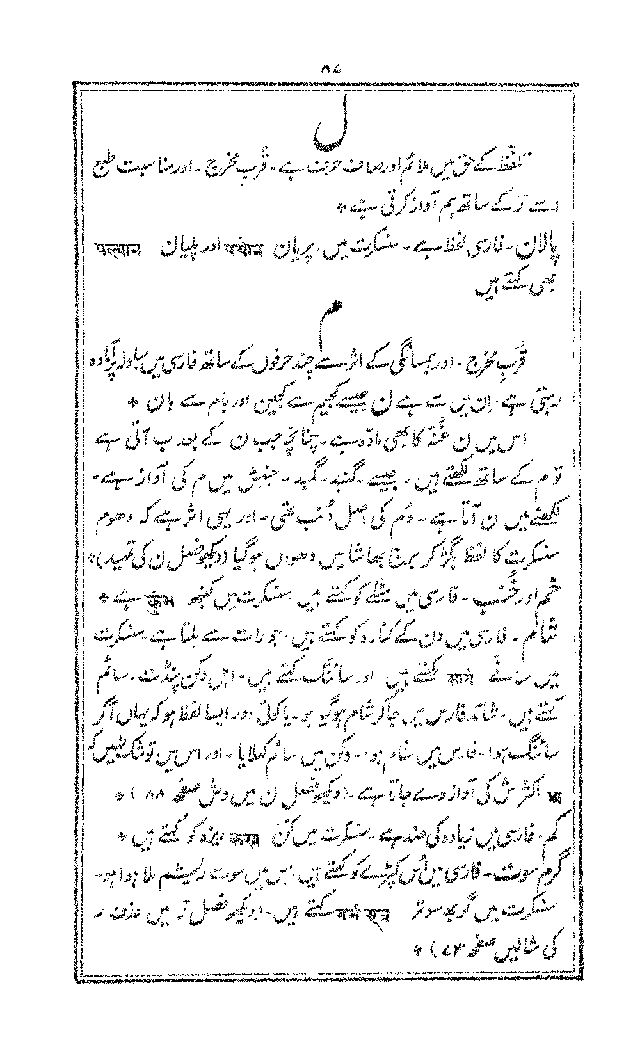 ۸۷
ل
تلفظ کے حق میں ملائم اور صاف حرف ہے۔ قُربِ مخرج۔ اور مناسبت طبع
سے رَ کے ساتھ ہم آواز کرتی ہے *
پالان۔ فارسی لفظ ہے۔ سنسکرت میں پریان पर्याण اور پلیان पल्यान
بھی کہتے ہیں
م
قُربِ مخرج۔ اور ہمسائگی کے اثر سے چند حرفوں کے ساتھ فارسی میں مبادلہ پر آمادہ
رہتی ہے۔ اِن میں سے ہے ن جیسے کجیم سے کجین اور بام سے بان *
اس میں ن غُنّہ کا بھی مادّہ ہے۔ چنانچہ جب ن کے بعد ب آتی ہے
تو م کے ساتھ لکھتے ہیں۔ جیسے۔ گنبد۔ گمبد۔ جنبش میں م کی آواز ہے۔
لکھنے میں ن آتا ہے۔ دُم کی اصل دُنب تھی۔ اور یہی اثر ہے کہ دھوم
سنسکرت کا لفظ بگڑ کر برج بھاشا میں دھوں ہوگیا (دیکھو فصل ن کی تمہید) *
خُم اور خُنب۔ فارسی میں مٹکے کو کہتے ہیں۔ سنسکرت میں کنبھ कुम्भ ہے *
شام۔ فارسی میں دن کے کنارہ کو کہتے ہیں۔ جو رات سے ملتا ہے سنسکرت
میں سائے सायं کہتے ہیں اور سائنگ کہتے ہیں۔ اہل دکن پنڈت۔ سائم
کہتے ہیں۔ شاید فارس میں جاکر شام ہوگیا ہو۔ یا کوئی اور ایسا لفظ ہو کہ یہاں آکر
سائنگ ہوا۔ فارس میں شام ہو۔ دکن میں سائم کہلایا۔ اور اس میں تو شک نہیں کہ
اکثر ش کی آواز دے جاتا ہے۔ (دیکھو فصل ن میں صفحہ ۸۸) *
کم۔ فارسی میں زیادہ کی ضد ہے۔ سنسکرت میں کو کہتے ہیں *
گرم سوت۔ فارسی میں اُس کپڑے کو کہتے ہیں جس میں سوت ریشم ملا ہوا ہو۔
سنسکرت میں گربھ سوتر गर्भसूत्र کہتے ہیں۔ (دیکھو فصل میں حذف ر
کی مثالیں صفحہ ۷۳) *